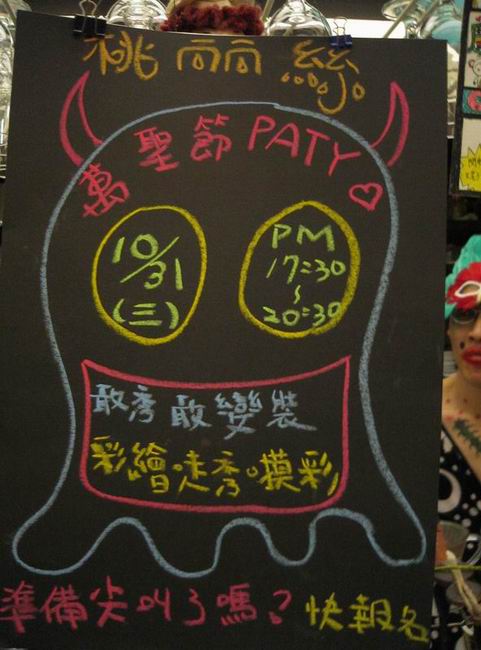 桃丽絲
萬聖節PATY
10/31
(三)
PM
17:30
~
20:30
敢秀敢變裝
彩繪.走秀.摸彩
準備尖叫了嗎？快報名